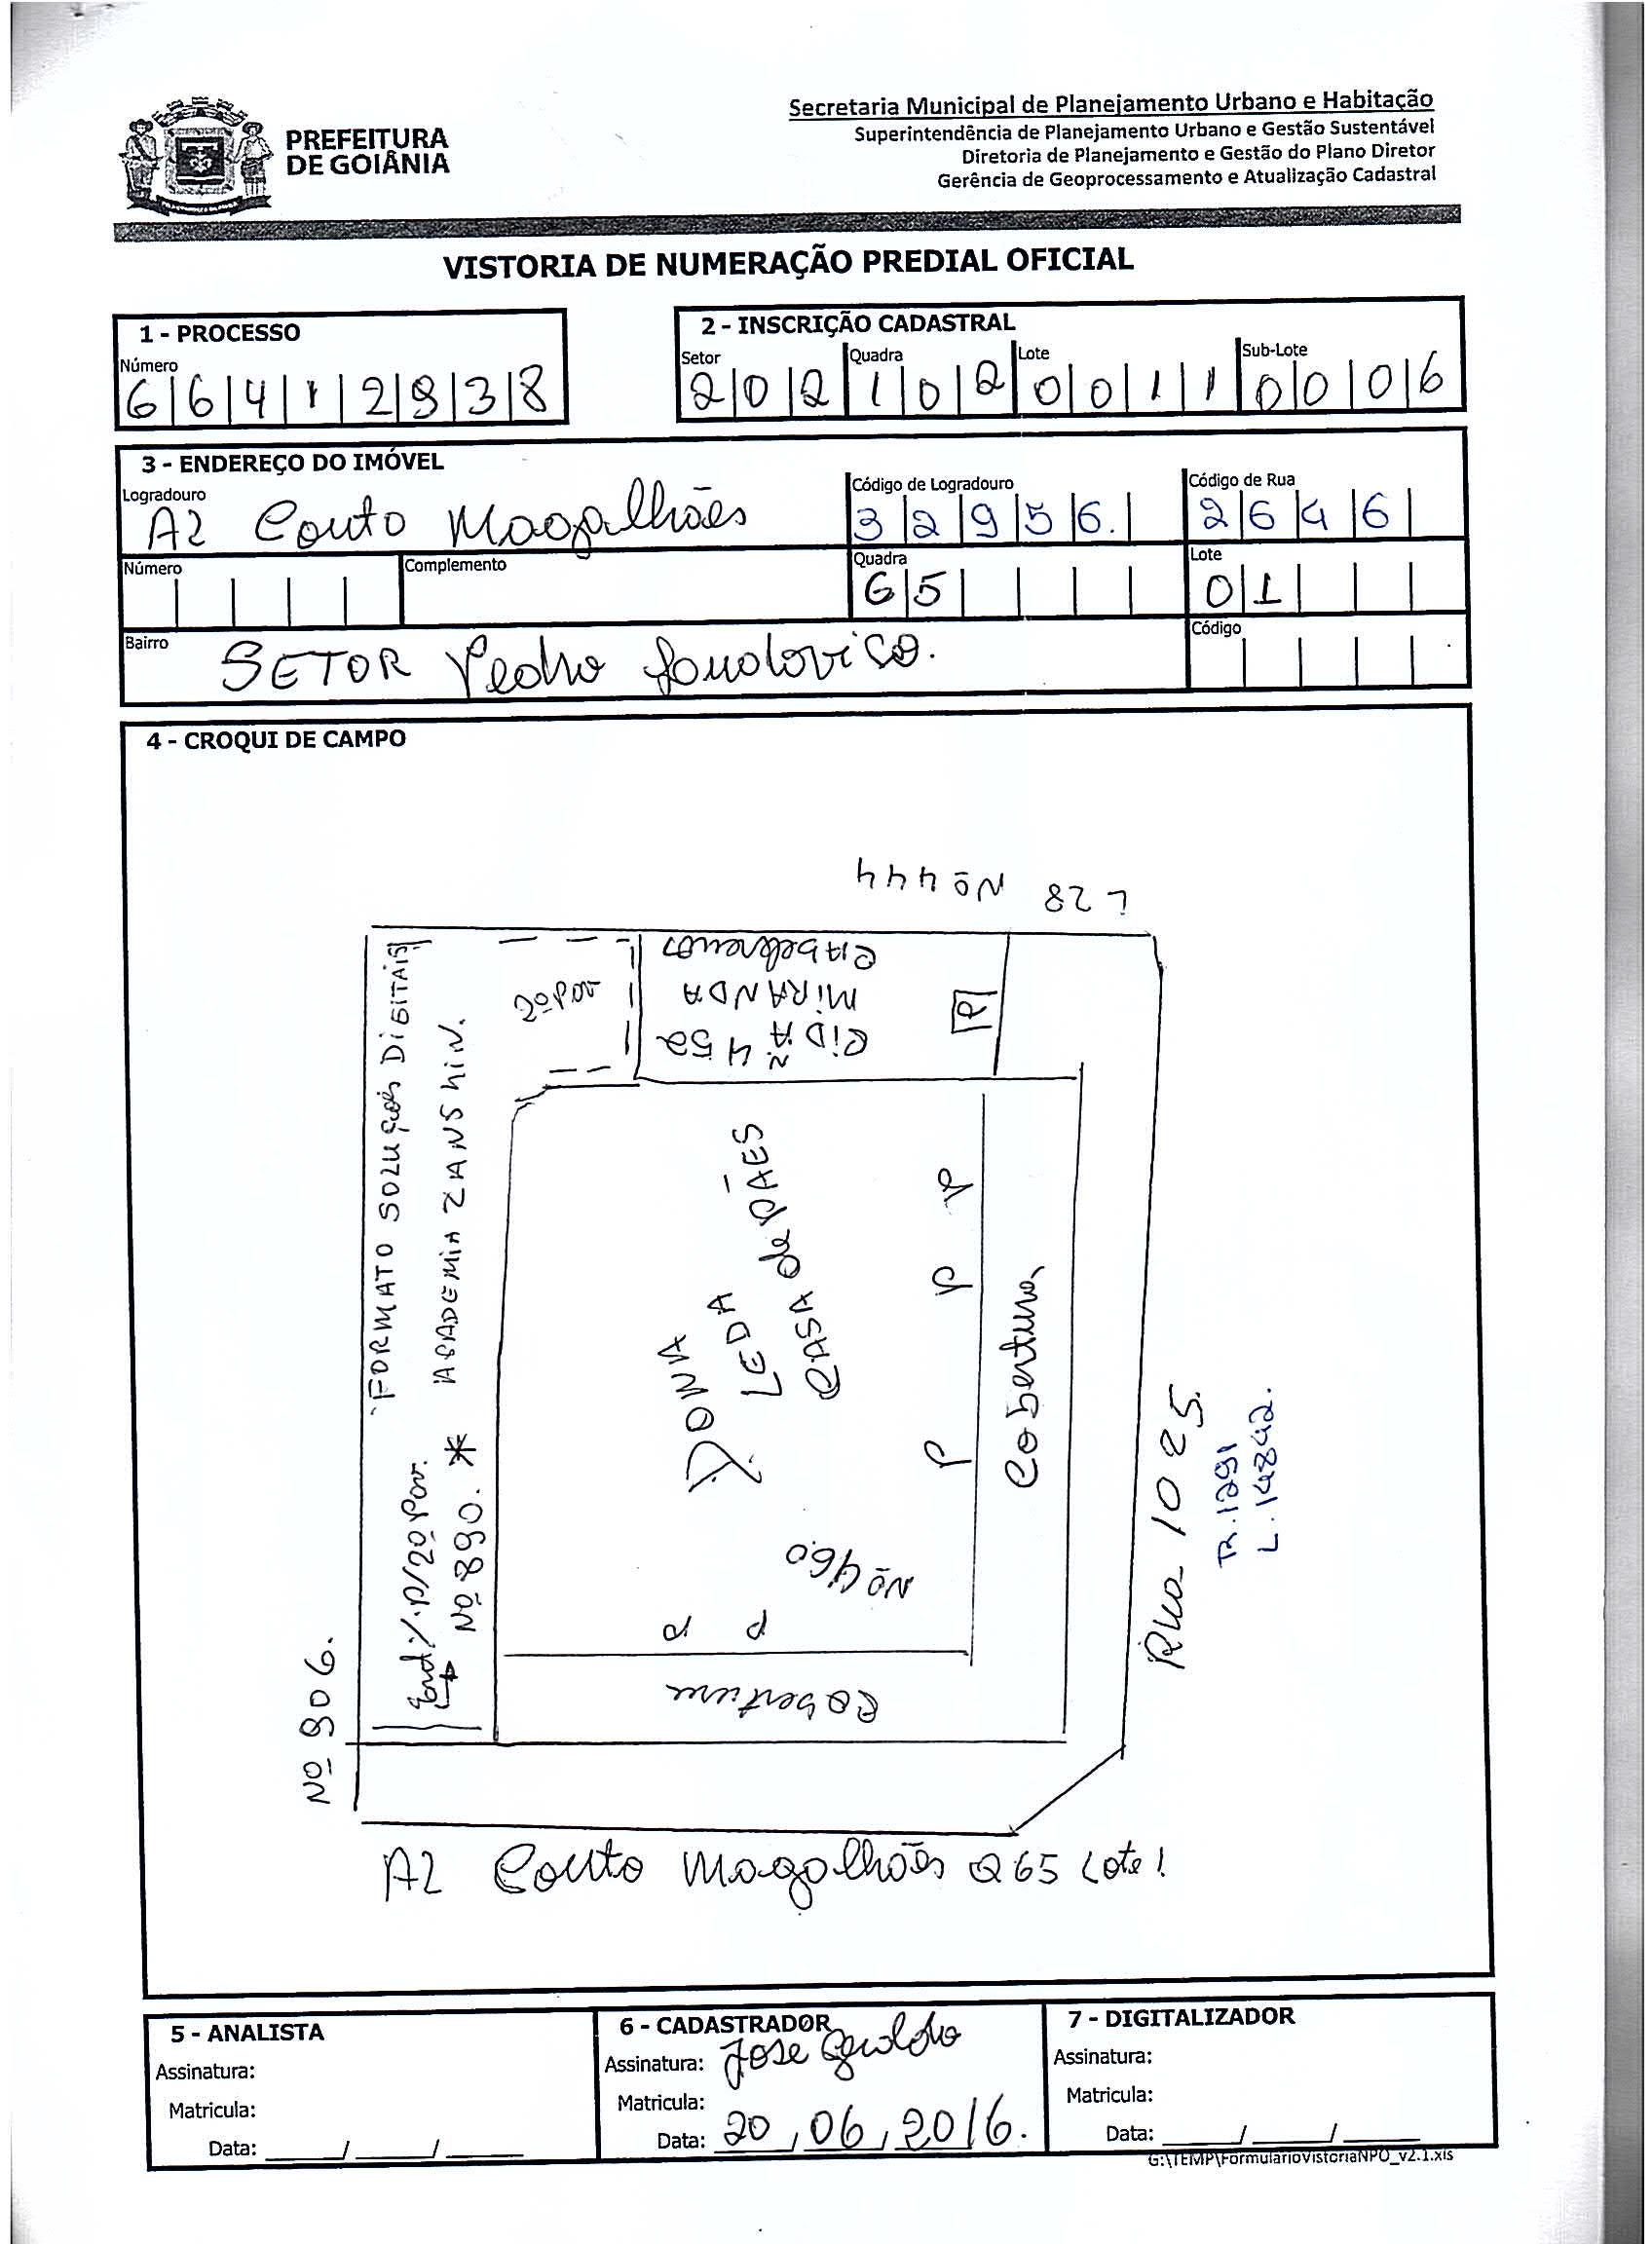 PREFEITURA
DE GOIÂNIA
Secretaria Municipal de Planejamento Urbano e Habitação
Superintendência de Planejamento Urbano e Gestão Sustentável
Diretoria de Planejamento e Gestão do Plano Diretor
Gerência de Geoprocessamento e Atualização Cadastral
VISTORIA DE NUMERAÇÃO PREDIAL OFICIAL
1 - PROCESSO
Número
6 6 4 1 2 9 3 8
2 - INSCRIÇÃO CADASTRAL
Setor Quadra Lote Sub-Lote
2 0 2 1 0 2 0 0 1 1 0 0 0 6
3 - ENDEREÇO DO IMÓVEL
Logradouro Código de Logradouro Código de Rua
Couto Magalhães 3 2 9 5 6. 2 6 4 6
Número Complemento Quadra Lote
6 5 0 1
Bairro Código
SETOR Pedro
4 - CROQUI DE CAMPO
L 28 Nº 444
FORMATO SOLUÇÕES DIGITAIS
ACADEMIA ZANSHIN.
p/2º Pav.
Nº 890. *
2º Pav
CIDA
Nº 452
MIRANDA
Cabeleireiros
R
DONA
LEDA
CASA de PÃES
Nº 460
P P P
P P
Cobertura
Cobertura
Nº 906.
Rua 1025.
TR. 1291
L. 14842.
Couto Magalhães Q65 Lote 1
5 - ANALISTA
Assinatura:
Matricula:
Data: ____/____/____
6 - CADASTRADOR
Assinatura: Jose Geraldo
Matricula:
Data: 20, 06, 2016.
7 - DIGITALIZADOR
Assinatura:
Matricula:
Data: ____/____/____
G:\TEMP\FormularioVistoriaNPO_v2.1.xls